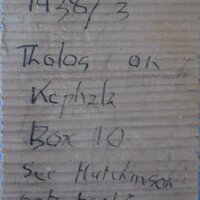 1938/3
Tholos on
Kephala
Box 10
See Hutchinson:
note book: